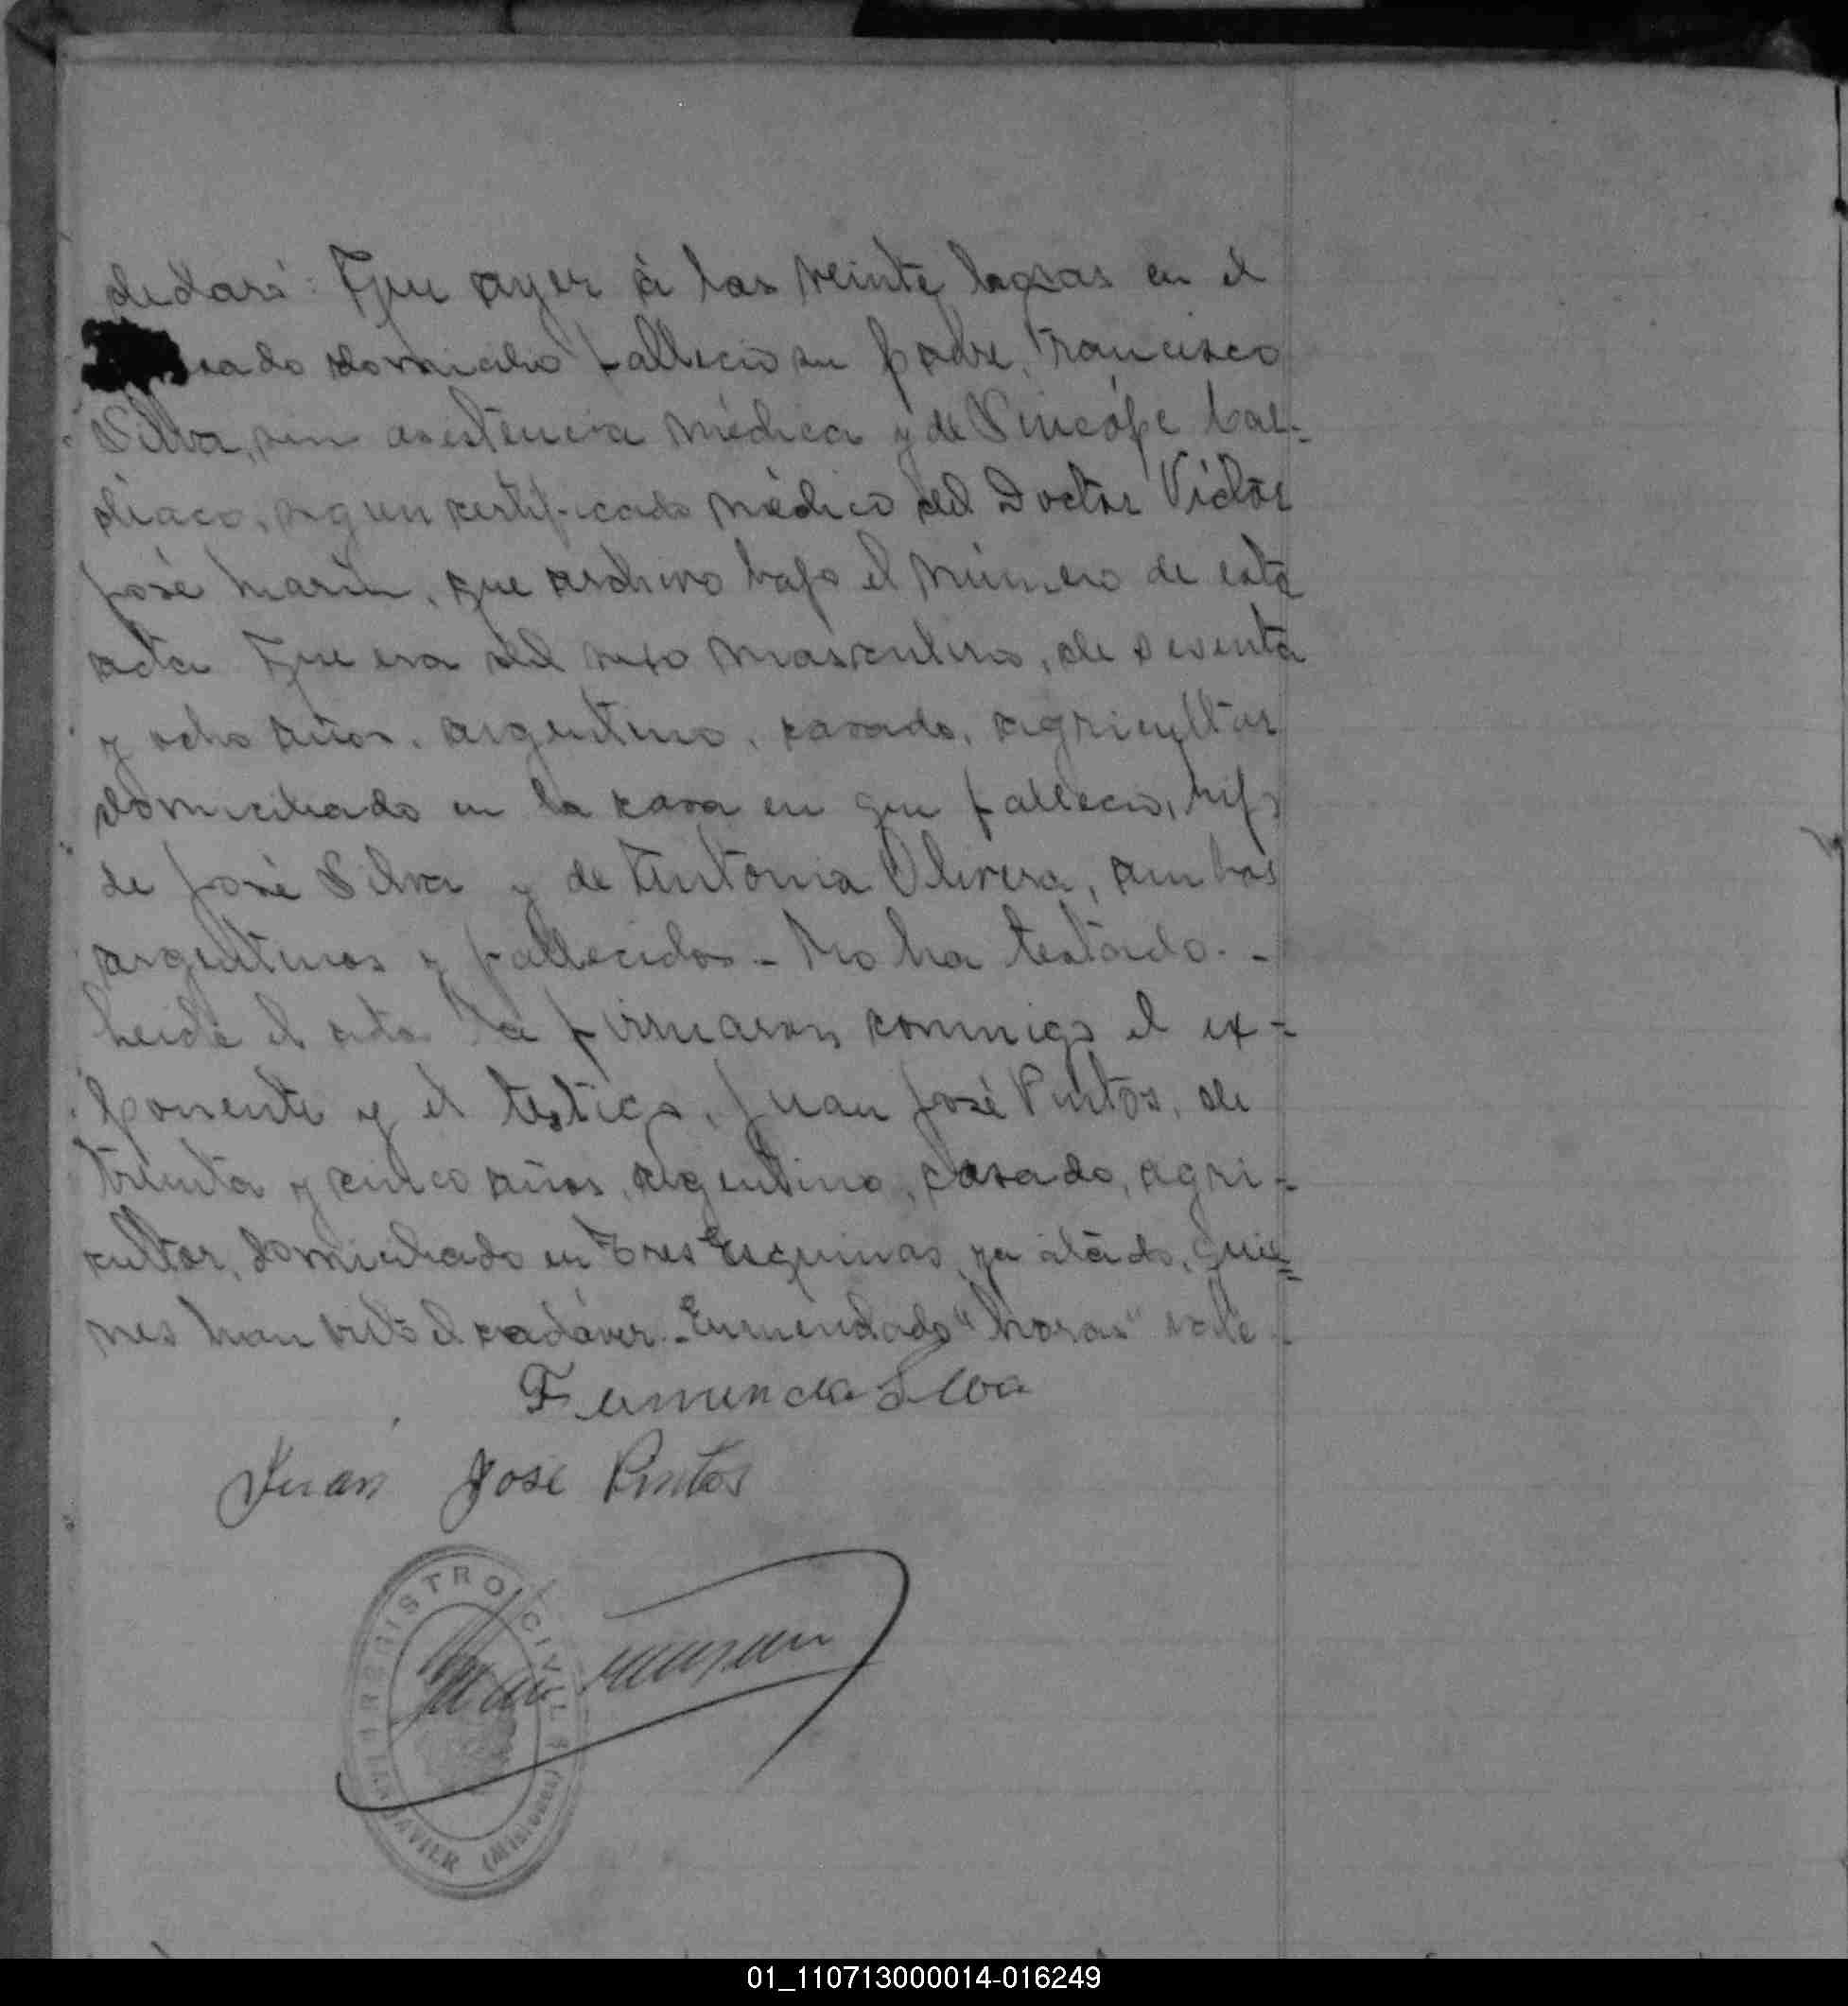 declaró: Que ayer á las veinte horas en el
domicilio falleció su padre, Francisco
Silva, sin asistencia médica y de Sincópe Car-
diaco, segun certificado médico del Doctor Víctor
José Marín, que archivo bajo el número de esta
acta Que era del sexo masculino, de
y ocho años, argentino, casado, agricultor
domiciliado en la casa en que falleció, hijo
de José Silva y de Antonia Olivera, ambos
argentinos y fallecidos - No ha testado. -
Leida el acta la firmaron conmigo el ex=
ponente y el testigo, Juan José Pintos, de
treinta y cinco años, argentino, casado, agri-
cultor, domiciliado en Tres Esquinas ya citado, quie=
nes han visto el cadáver. - Enmendado "horas" vale.
Silva
Juan José Pintos
REGISTRO CIVIL
JAVIER (Misiones)
01_110713000014-016249